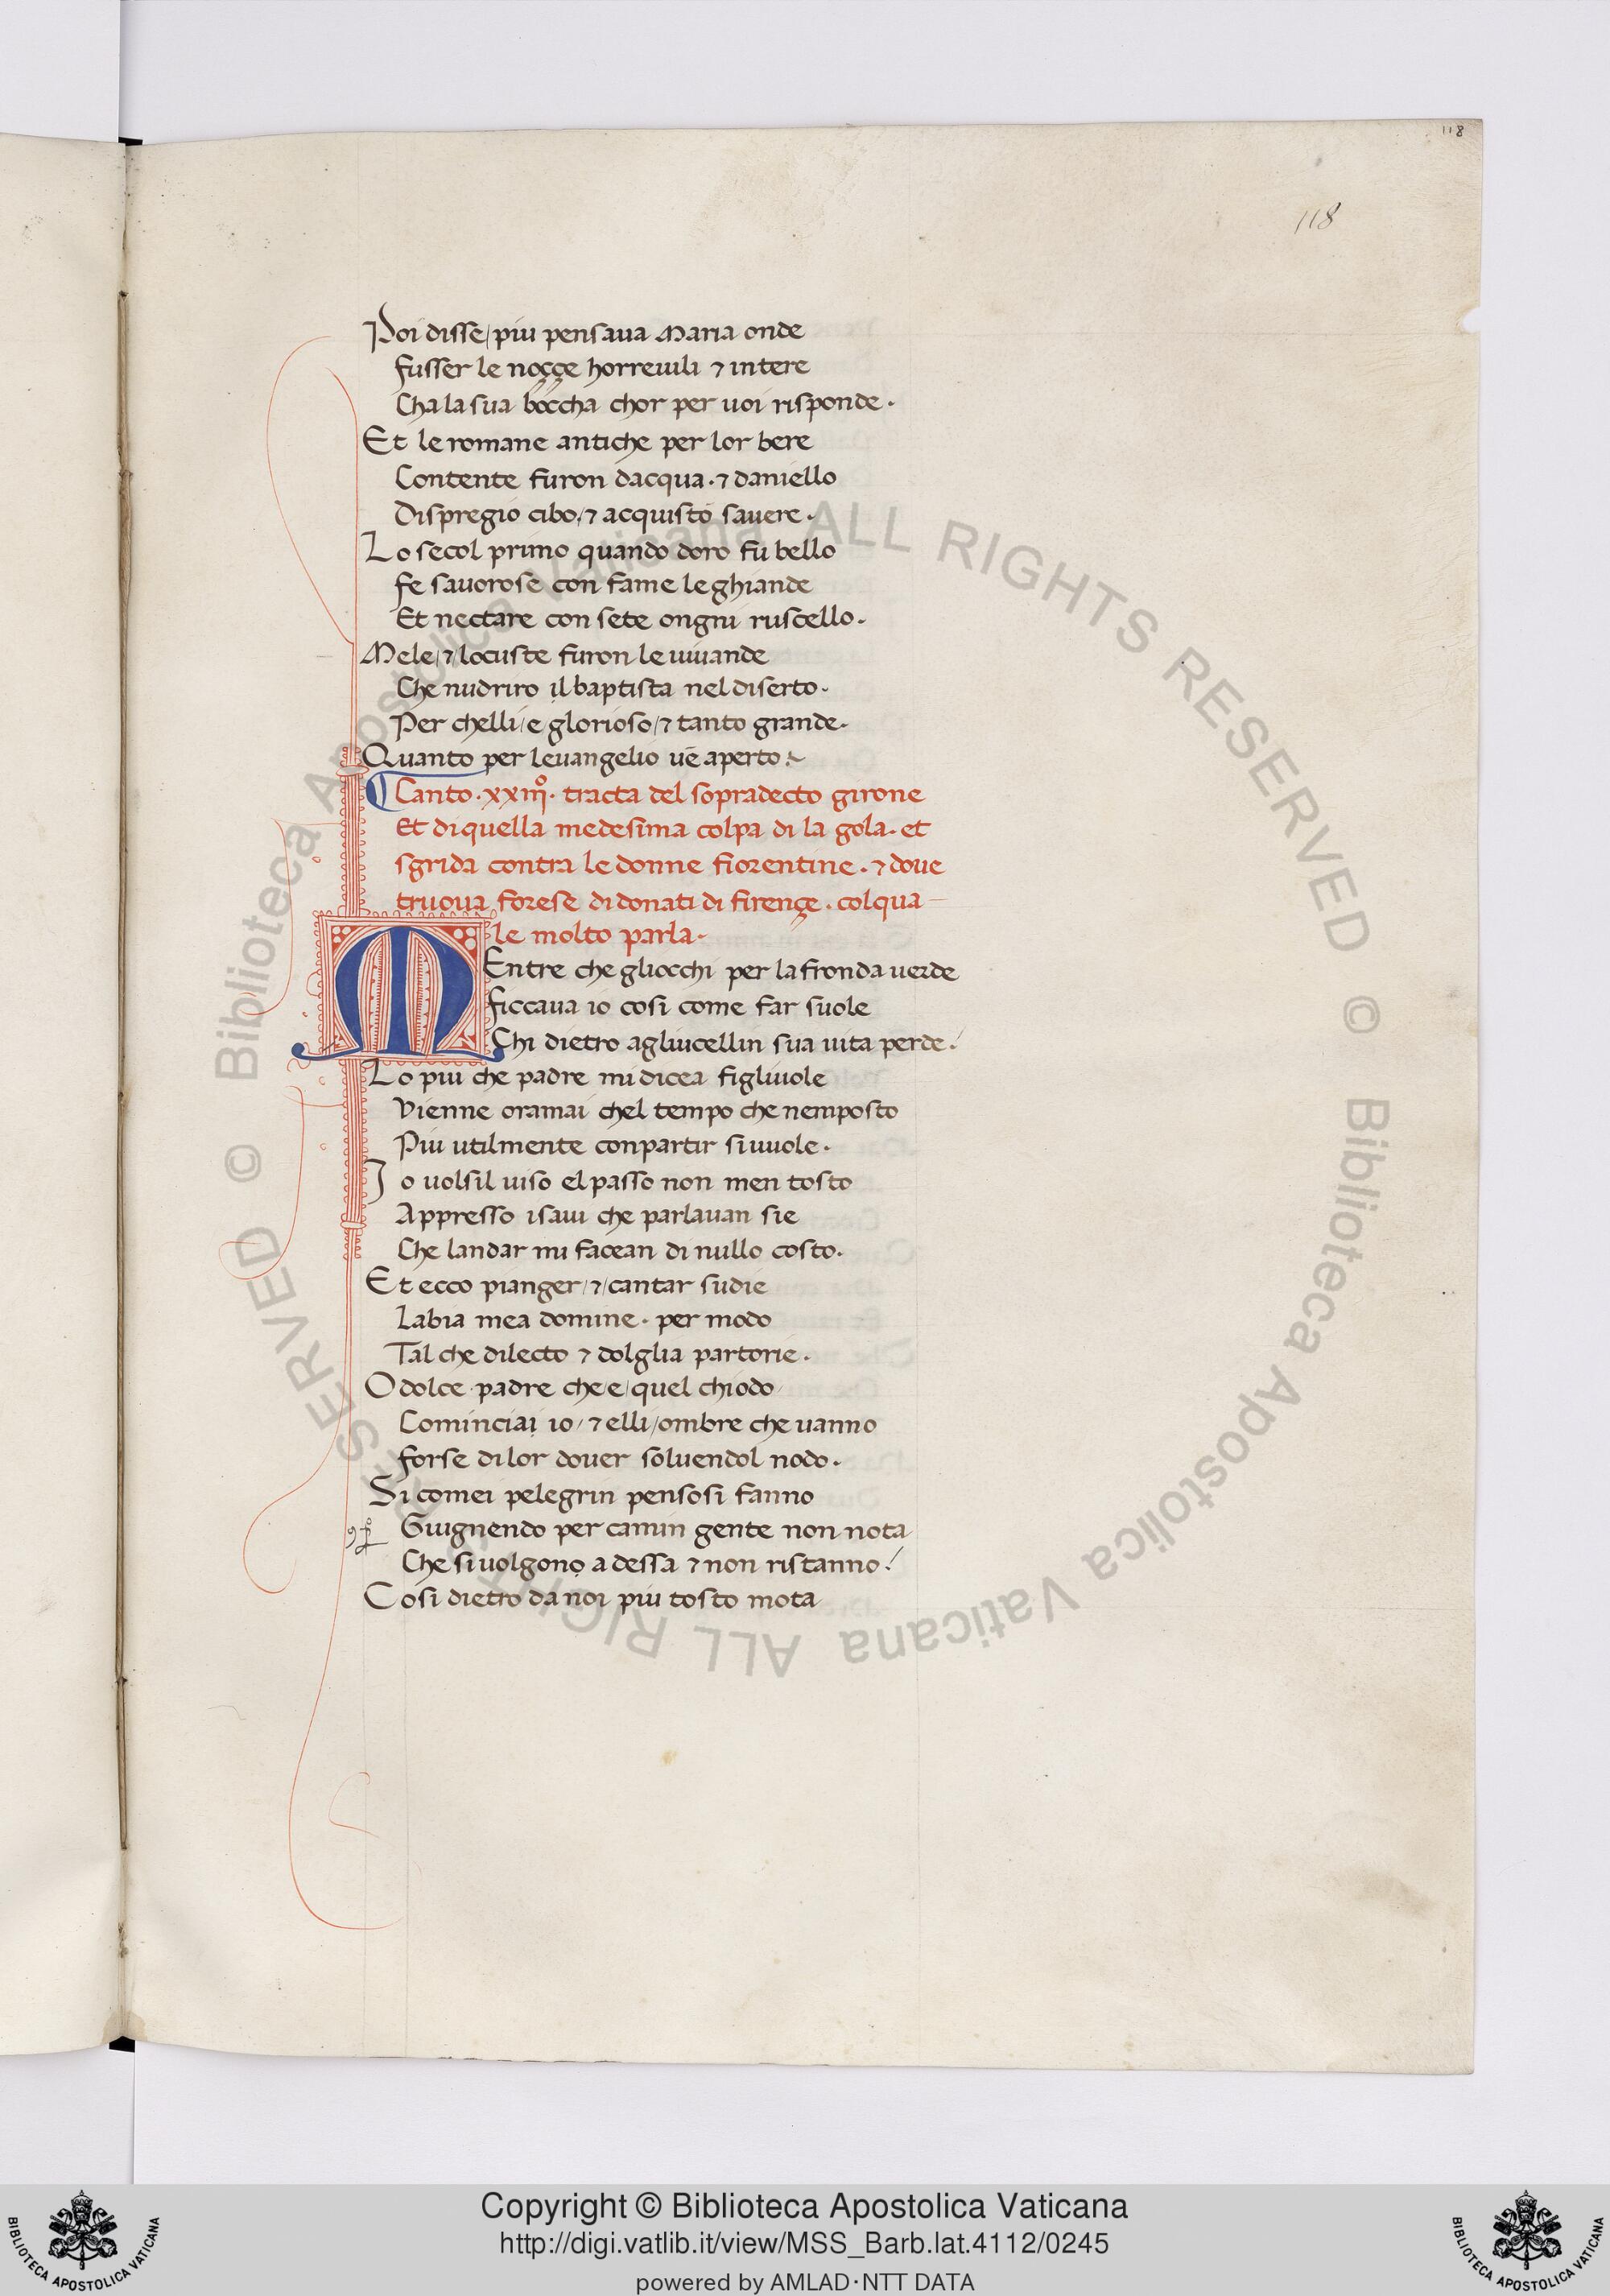 118
118
Poi disse/piu pensaua Maria onde
fusser le noççe horreuili ⁊ intere
Cha la sua boccha chor per uoi risponde.
Et le romane antiche per lor bere
Contente furon dacqua. ⁊ daniello
Dispregio cibo/⁊ acquisto sauere.
Lo secol primo quando doro fu bello
fe sauorose con fame le ghiande
Et nectare con sete ongni ruscello.
Mele/⁊ locuste furon le uiuande
Che nudriro il baptista nel diserto.
Per chelli/e glorioso/⁊ tanto grande.
Quanto per leuangelio uē aperto.
Canto .xxiijº. tracta del sopradecto girone
Et di quella medesima colpa di la gola. et
sgrida contra le donne fiorentine. ⁊ doue
truoua forese di donati di firençe. col qua
le molto parla.
MEntre che gliocchi per la fronda uerde
ficcaua io cosi come far suole
Chi dietro agliucellin sua uita perde.
Lo piu che padre mi dicea figliuole
Vienne oramai chel tempo che nemposto
Piu utilmente conpartir si uuole.
Io uolsil uiso el passo non men tosto
Appresso i saui che parlauan sie
Che landar mi facean di nullo costo.
Et ecco pianger/⁊/cantar sudie
Labia mea domine. per modo
Tal che dilecto ⁊ dolglia partorie.
O dolce padre che/e/quel chiodo
Cominciai io/⁊ elli/ombre che uanno
forse di lor douer soluendol nodo.
Si come i pelegrin pensosi fanno
Giugnendo per camin gente non nota
Che si uolgono a dessa ⁊ non ristanno.
Cosi dietro da noi piu tosto mota
© Biblioteca Apostolica Vaticana ALL RIGHTS RESERVED © Biblioteca Apostolica Vaticana ALL RIGHTS RESERVED
Copyright © Biblioteca Apostolica Vaticana
http://digi.vatlib.it/view/MSS_Barb.lat.4112/0245
powered by AMLAD·NTT DATA
BIBLIOTECA APOSTOLICA VATICANA
BIBLIOTECA APOSTOLICA VATICANA